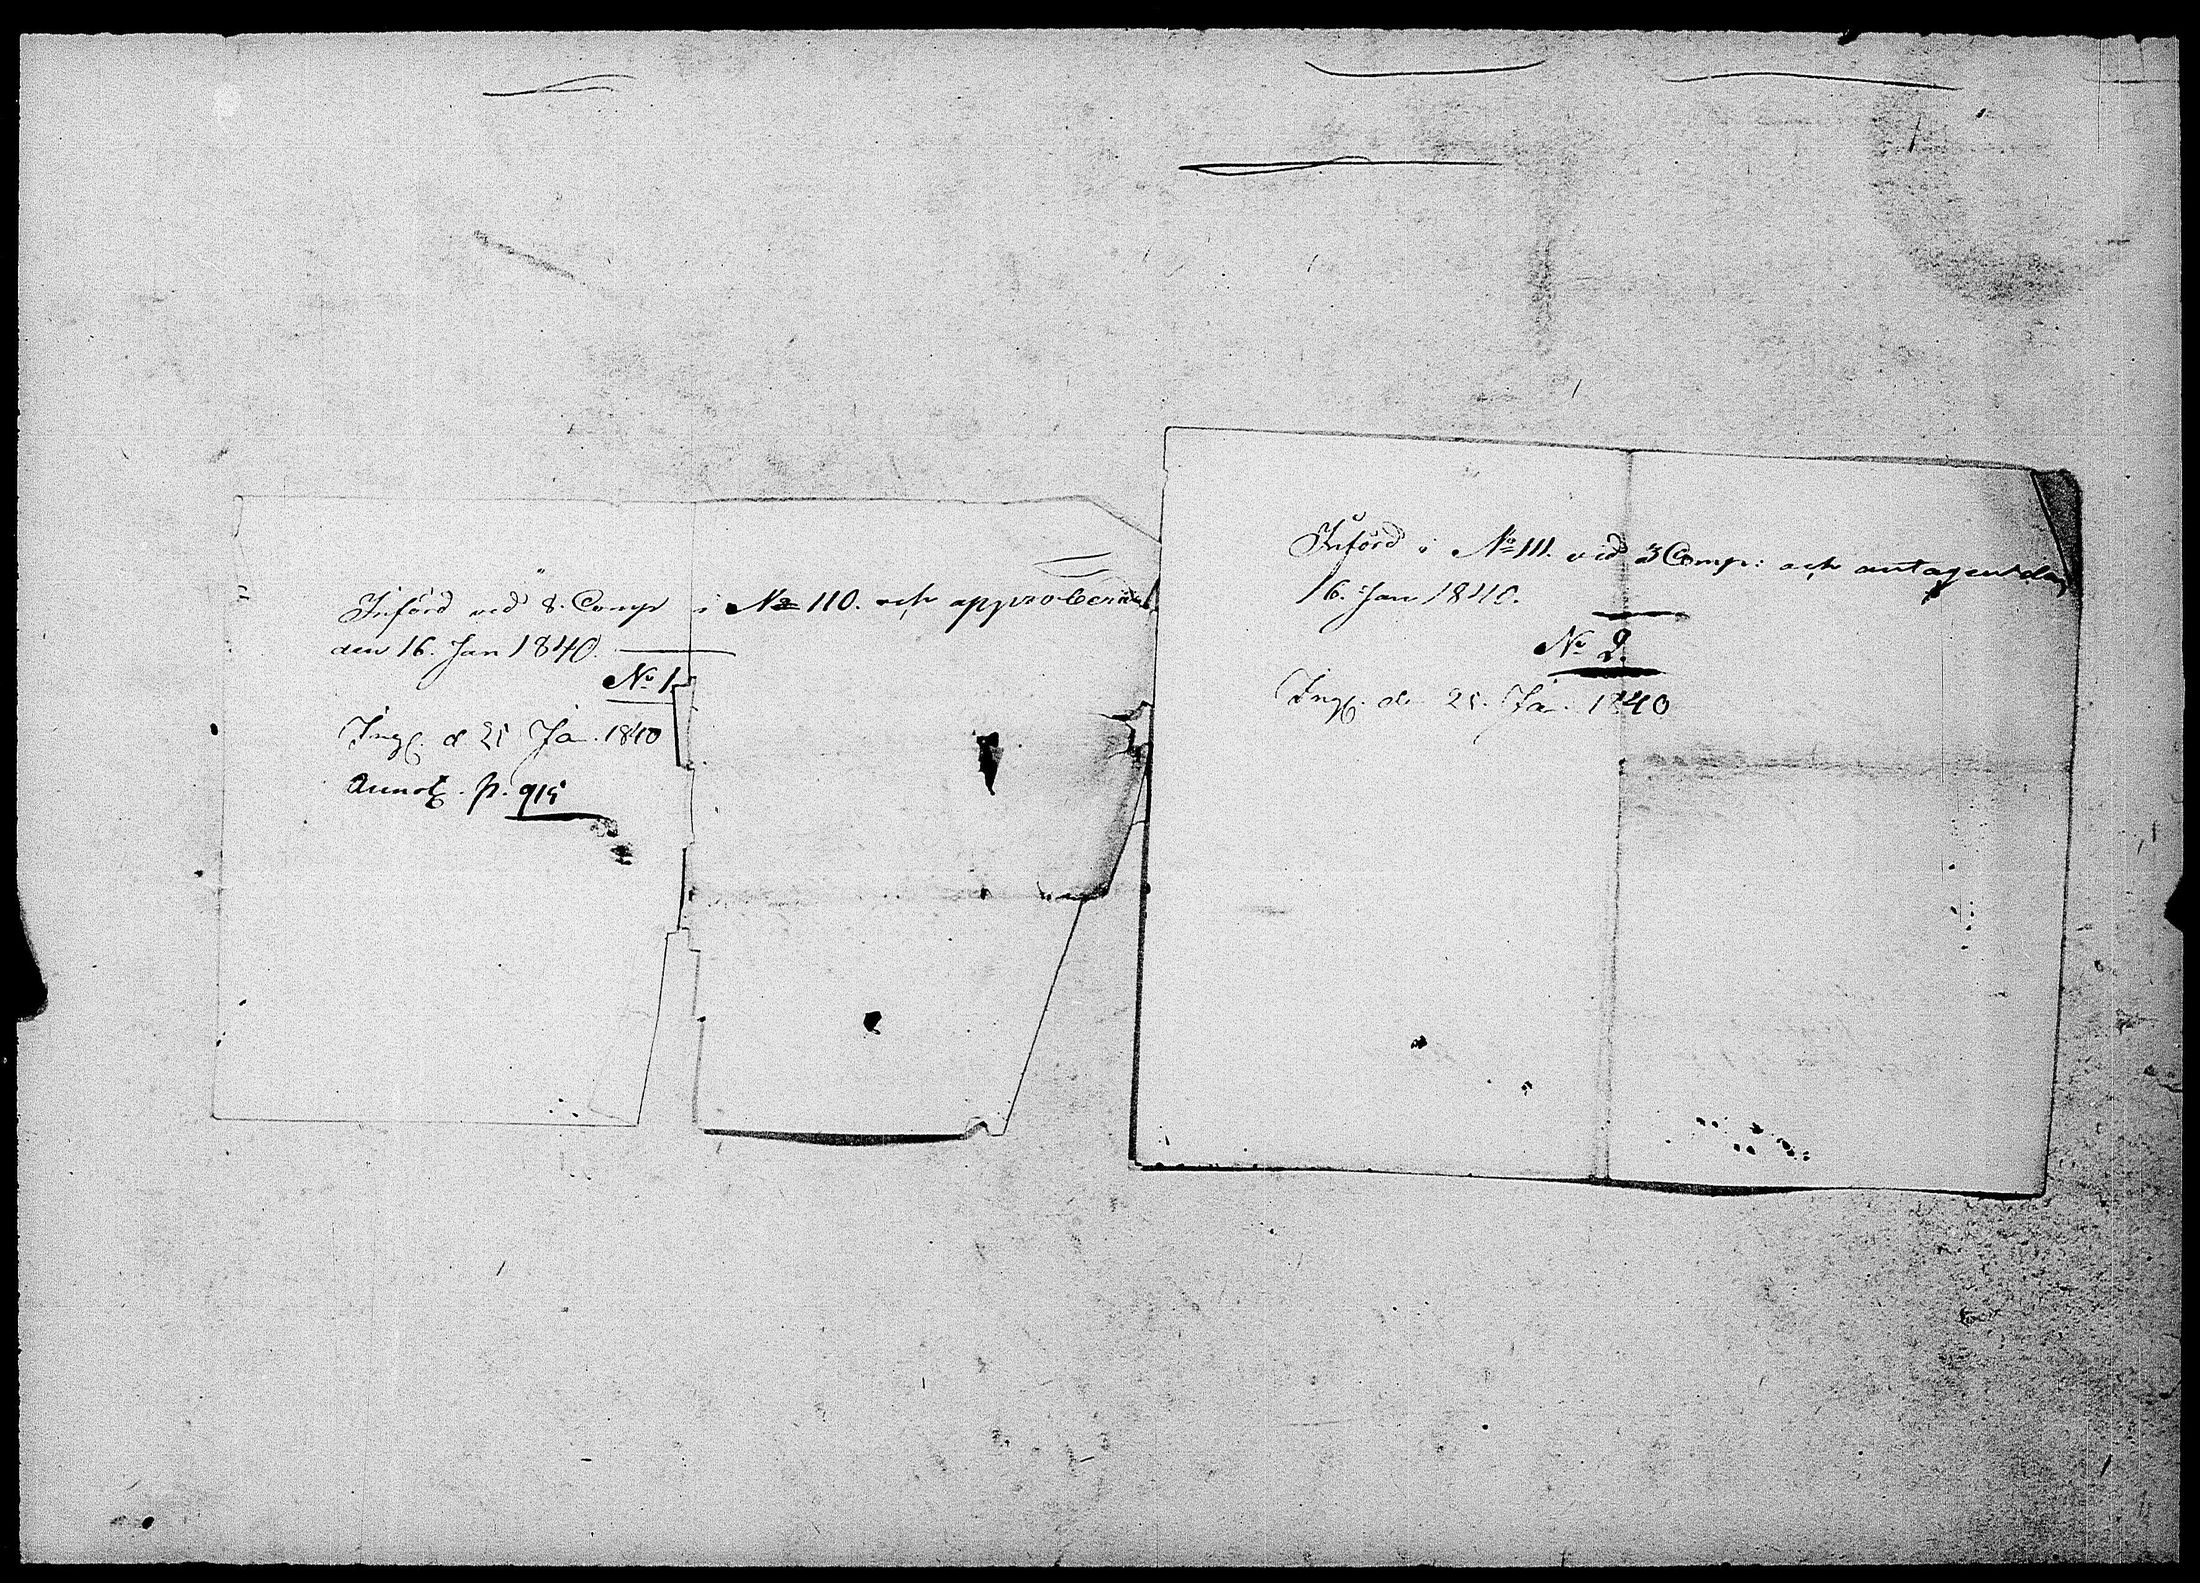 Införd ved 8. Comp i No 110. och approberad
den 16. Jan 1840.
No 1
Ingf. d 25 Ja. 1840
Annot. p. 915
Införd i No 111. vid 3 Comp: och antagen den
16. Jan 1840.
No 2.
Ingf. de 25. Ja. 1840